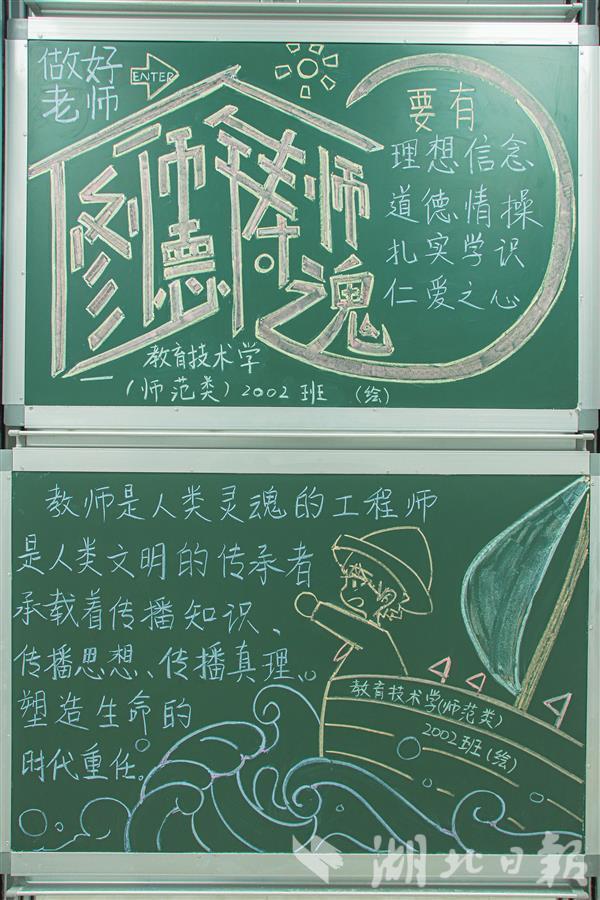 做好
老师
ENTER
修师德铸师魂
要有
理想信念
道德情操
扎实学识
仁爱之心
教育技术学
(师范类)2002班 (绘)
教师是人类灵魂的工程师
是人类文明的传承者
承载着传播知识、
传播思想、传播真理、
塑造生命的
时代重任。
教育技术学(师范类)
2002班(绘)
湖北日报